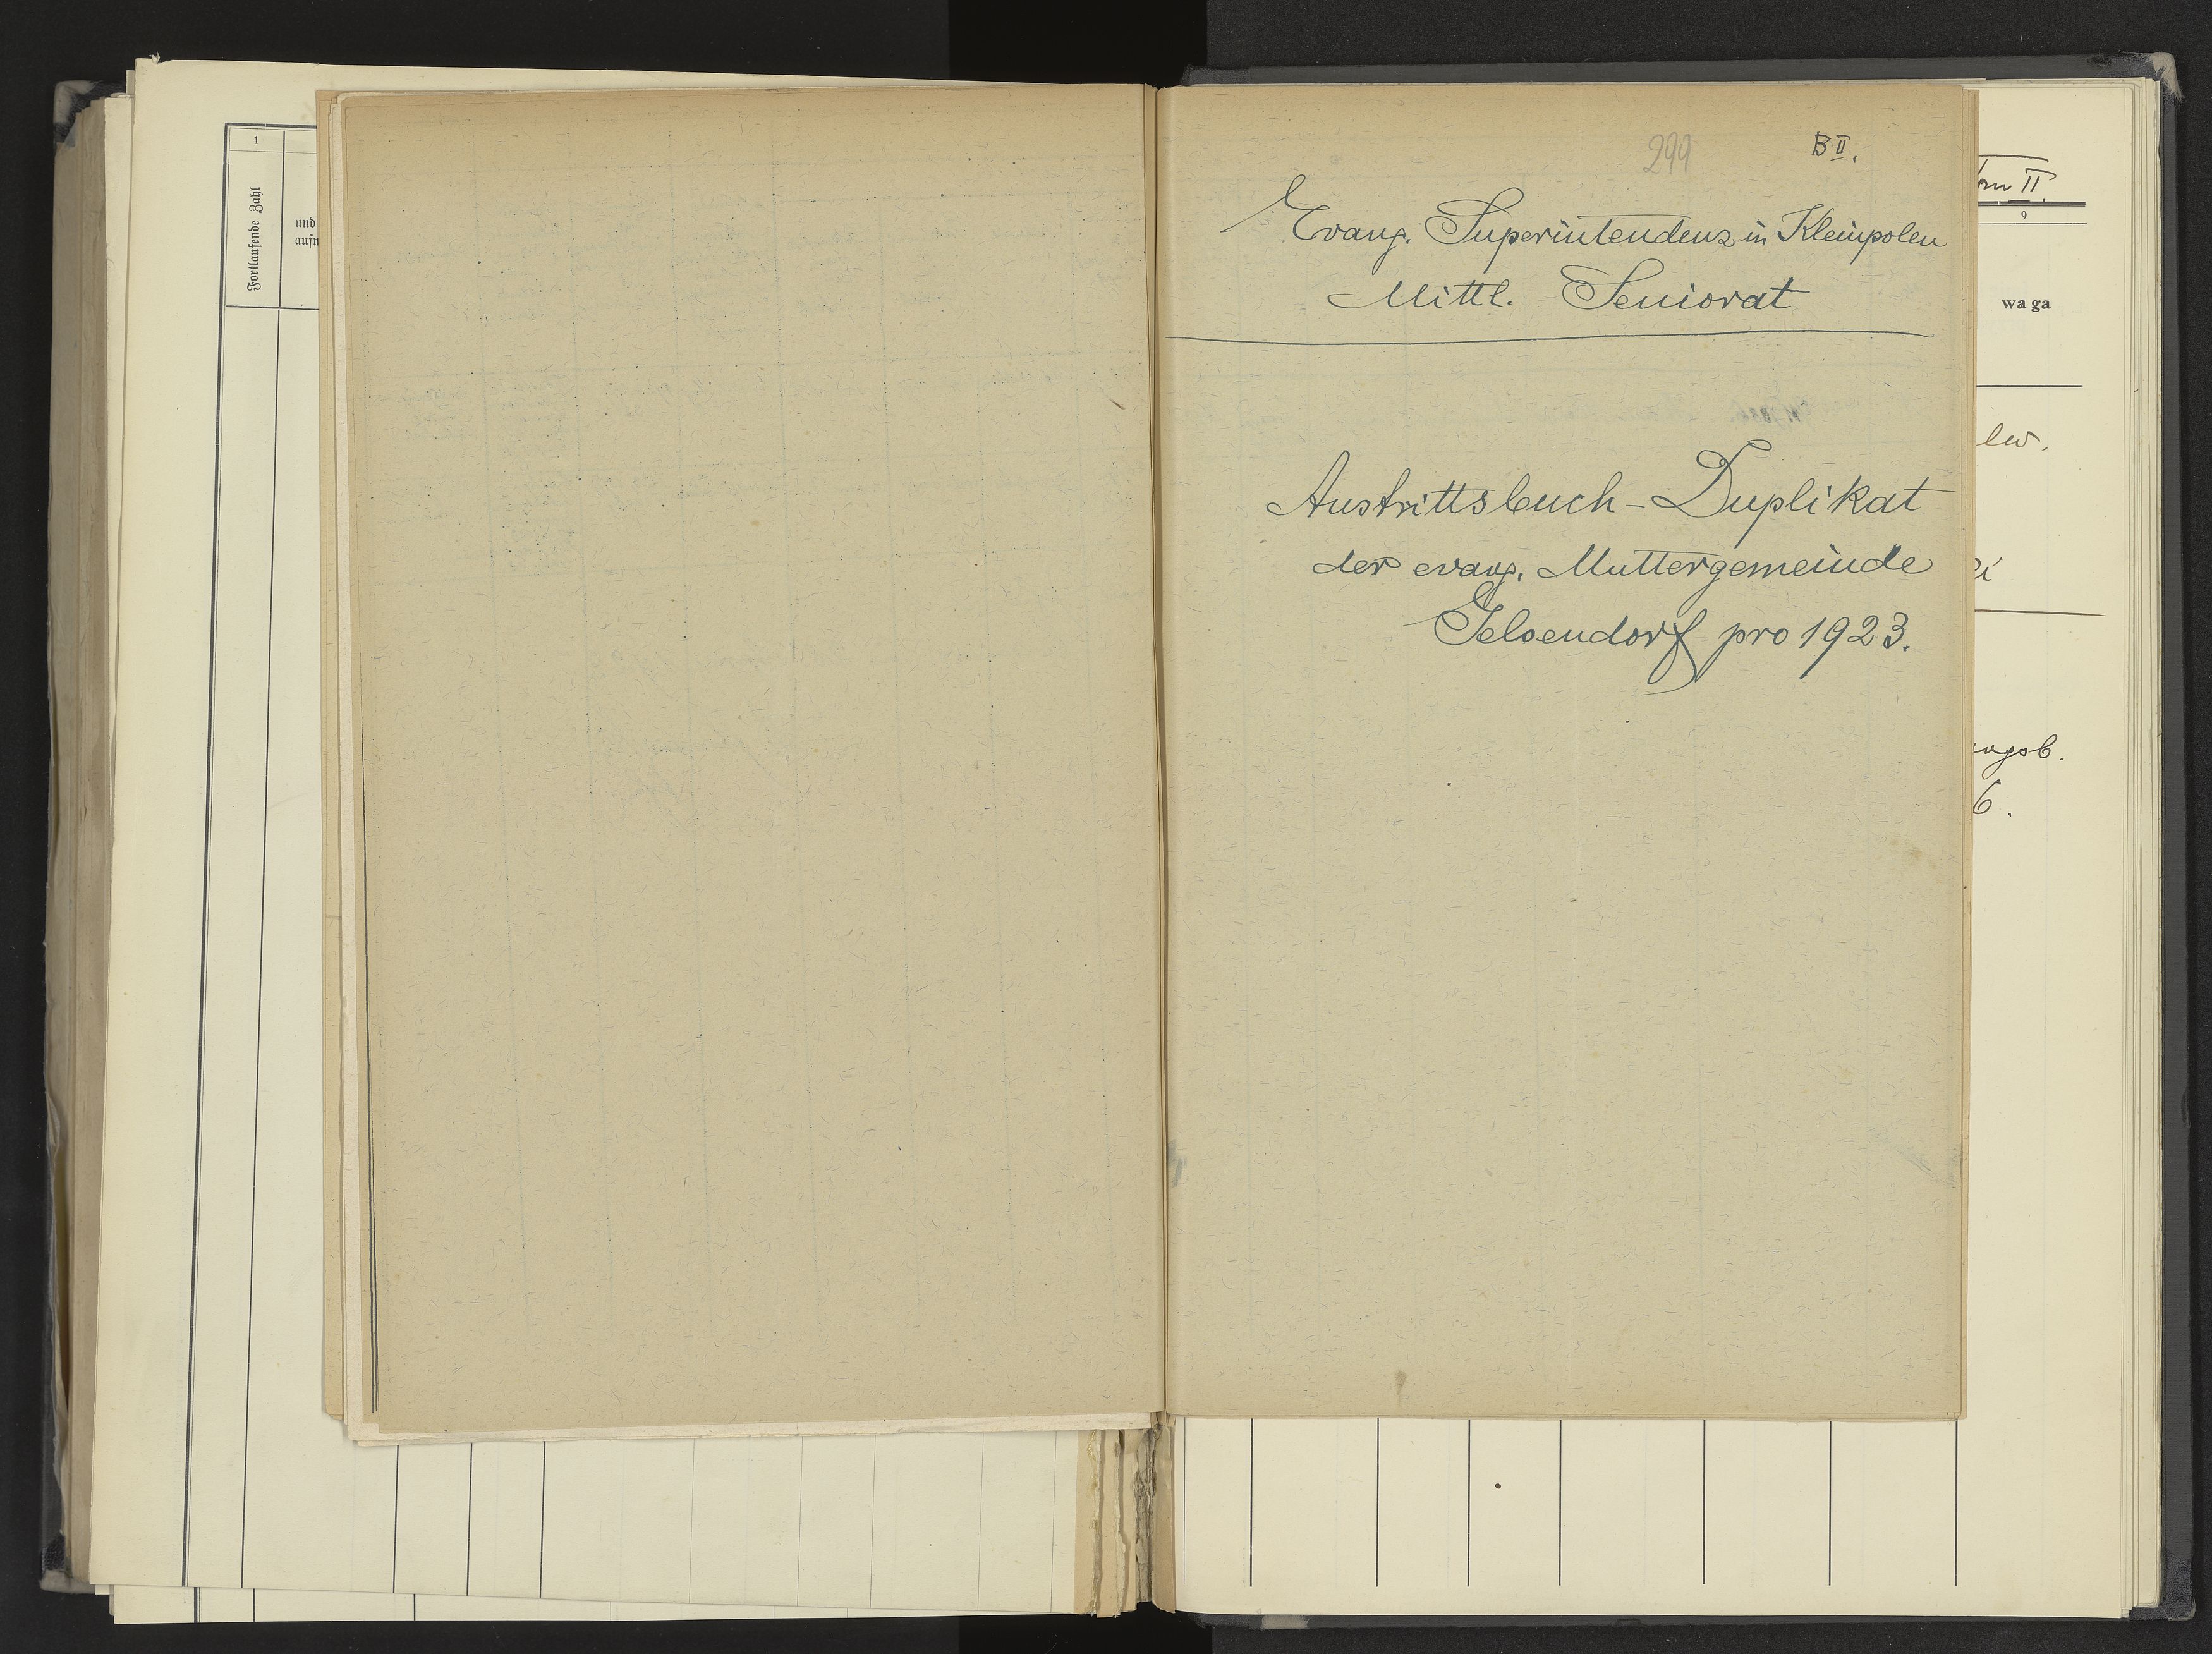 1
Fortlaufende Zahl
und
299
B II.
Evang. Superintendenz in Kleinpolen
Mittl. Seniorat
Austrittsbuch-Duplikat
der evang. Muttergemeinde
Gelsendorf pro 1923.
II.
9
waga
lew.
6.